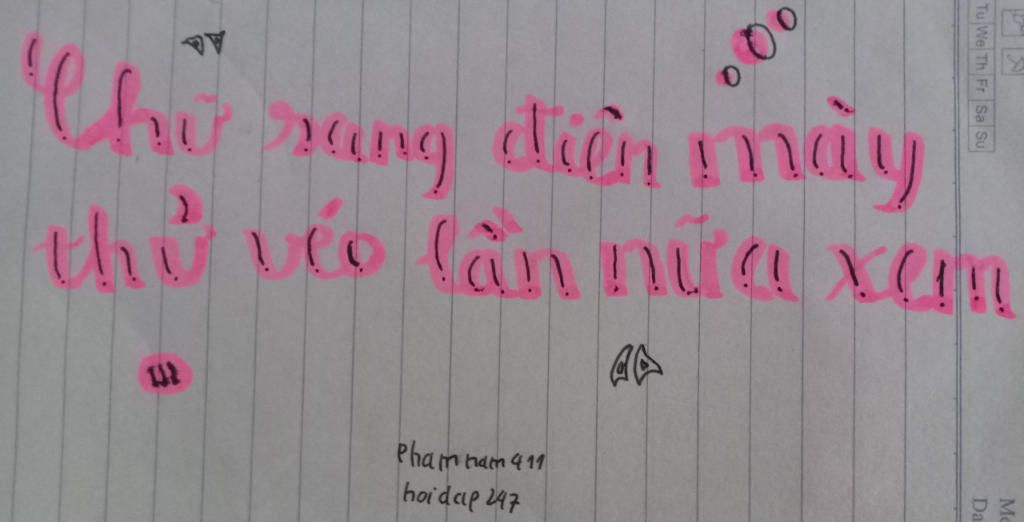 Chữ rang điên mày
thử véo lần nữa xem
phamnam411
hoidap247
Tu We Th Fr Sa Su